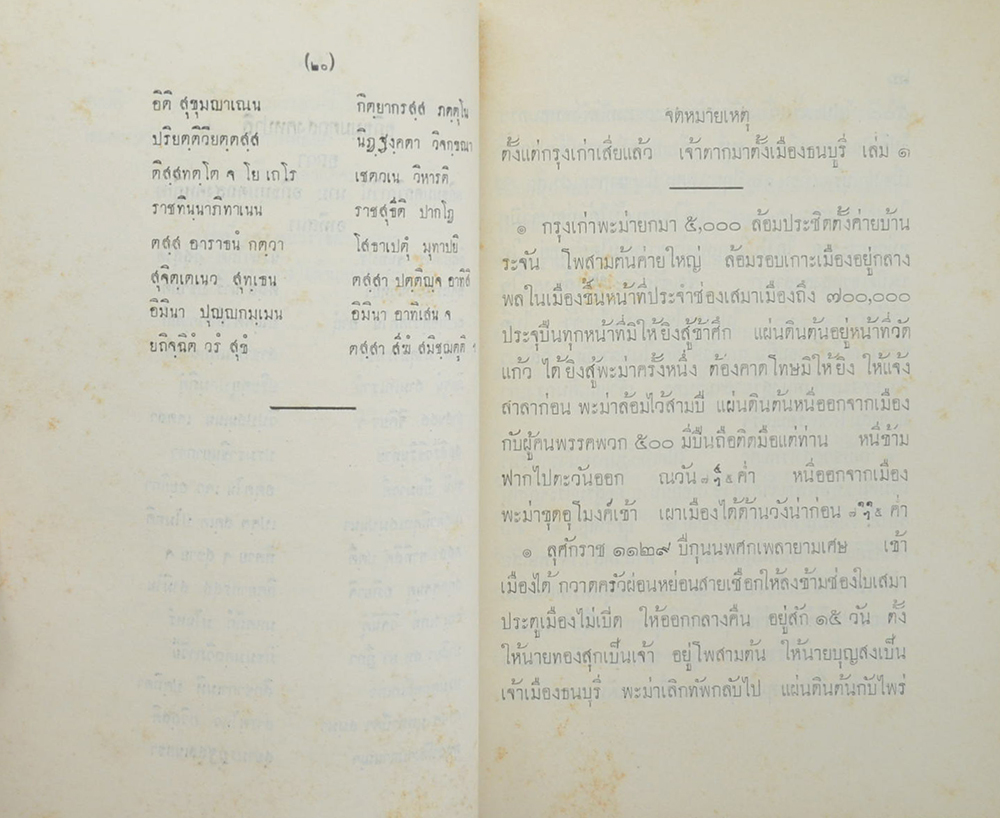 (๒๐)
อิติ สุขุมญาเณน กิตฺยากรสฺส ภตฺตุโน
ปริยตฺติวียตฺตสฺส นิฏฺฐงฺคตา วิจกฺรณา
ติสฺสทตฺโต จ โย เถโร เชตวเน วิหารติ
ราชทินฺนาภิทาเนน ราชสุธีติ ปากโฏ
ตสฺส อาราธนํ กตฺวา โสธาเปตํ มุทาปยิ
สุจิตฺตเตเนว สุทฺเธน ตสฺสา ปตฺติญฺจ อาทิสิ
อิมินา ปุญฺญกมฺเมน อิมินา อาทิเสน จ
ยถิจฺฉิตํ วรํ สุขํ ตสฺสา สีฆํ สมิชฺฌตูติ
จดหมายเหตุ
ตั้งแต่กรุงเก่าเสียแล้ว เจ้าตากมาตั้งเมืองธนบูรี เล่ม ๑
๑ กรุงเก่าพะม่ายกมา ๕,๐๐๐ ล้อมประชิดตั้งค่ายบ้าน
ระจัน โพสามต้นค่ายใหญ่ ล้อมรอบเกาะเมืองอยู่กลาง
พลในเมืองขึ้นหน้าที่ประจำช่องเสมาเมืองถึง ๗๐๐,๐๐๐
ประจุปืนทุกหน้าที่มิให้ยิงสู้ข้าศึก แผ่นดินต้นอยู่หน้าที่วัด
แก้ว ได้ยิงสู้พะม่าครั้งหนึ่ง ต้องคาดโทษมิให้ยิง ให้แจ้ง
ศาลาก่อน พะม่าล้อมไว้สามปี แผ่นดินต้นหนีออกจากเมือง
กับผู้คนพรรคพวก ๕๐๐ มีปืนถือติดมือแต่ท่าน หนีข้าม
ฟากไปตะวันออก ณวัน ค่ำ หนีออกจากเมือง
พะม่าขุดอุโมงค์เข้า เผาเมืองได้ด้านวังน่าก่อน ค่ำ
๑ ลุศักราช ๑๑๒๙ ปีกุนนพศกเพลายามเศษ เข้า
เมืองได้ กวาดครัวผ่อนหย่อนสายเชือกให้ลงข้ามช่องใบเสมา
ประตูเมืองไม่เปิด ให้ออกกลางคืน อยู่สัก ๑๕ วัน ตั้ง
ให้นายทองสุกเป็นเจ้า อยู่โพสามต้น ให้นายบุญสงเป็น
เจ้าเมืองธนบูรี พะม่าเลิกทัพกลับไป แผ่นดินต้นกับไพร่